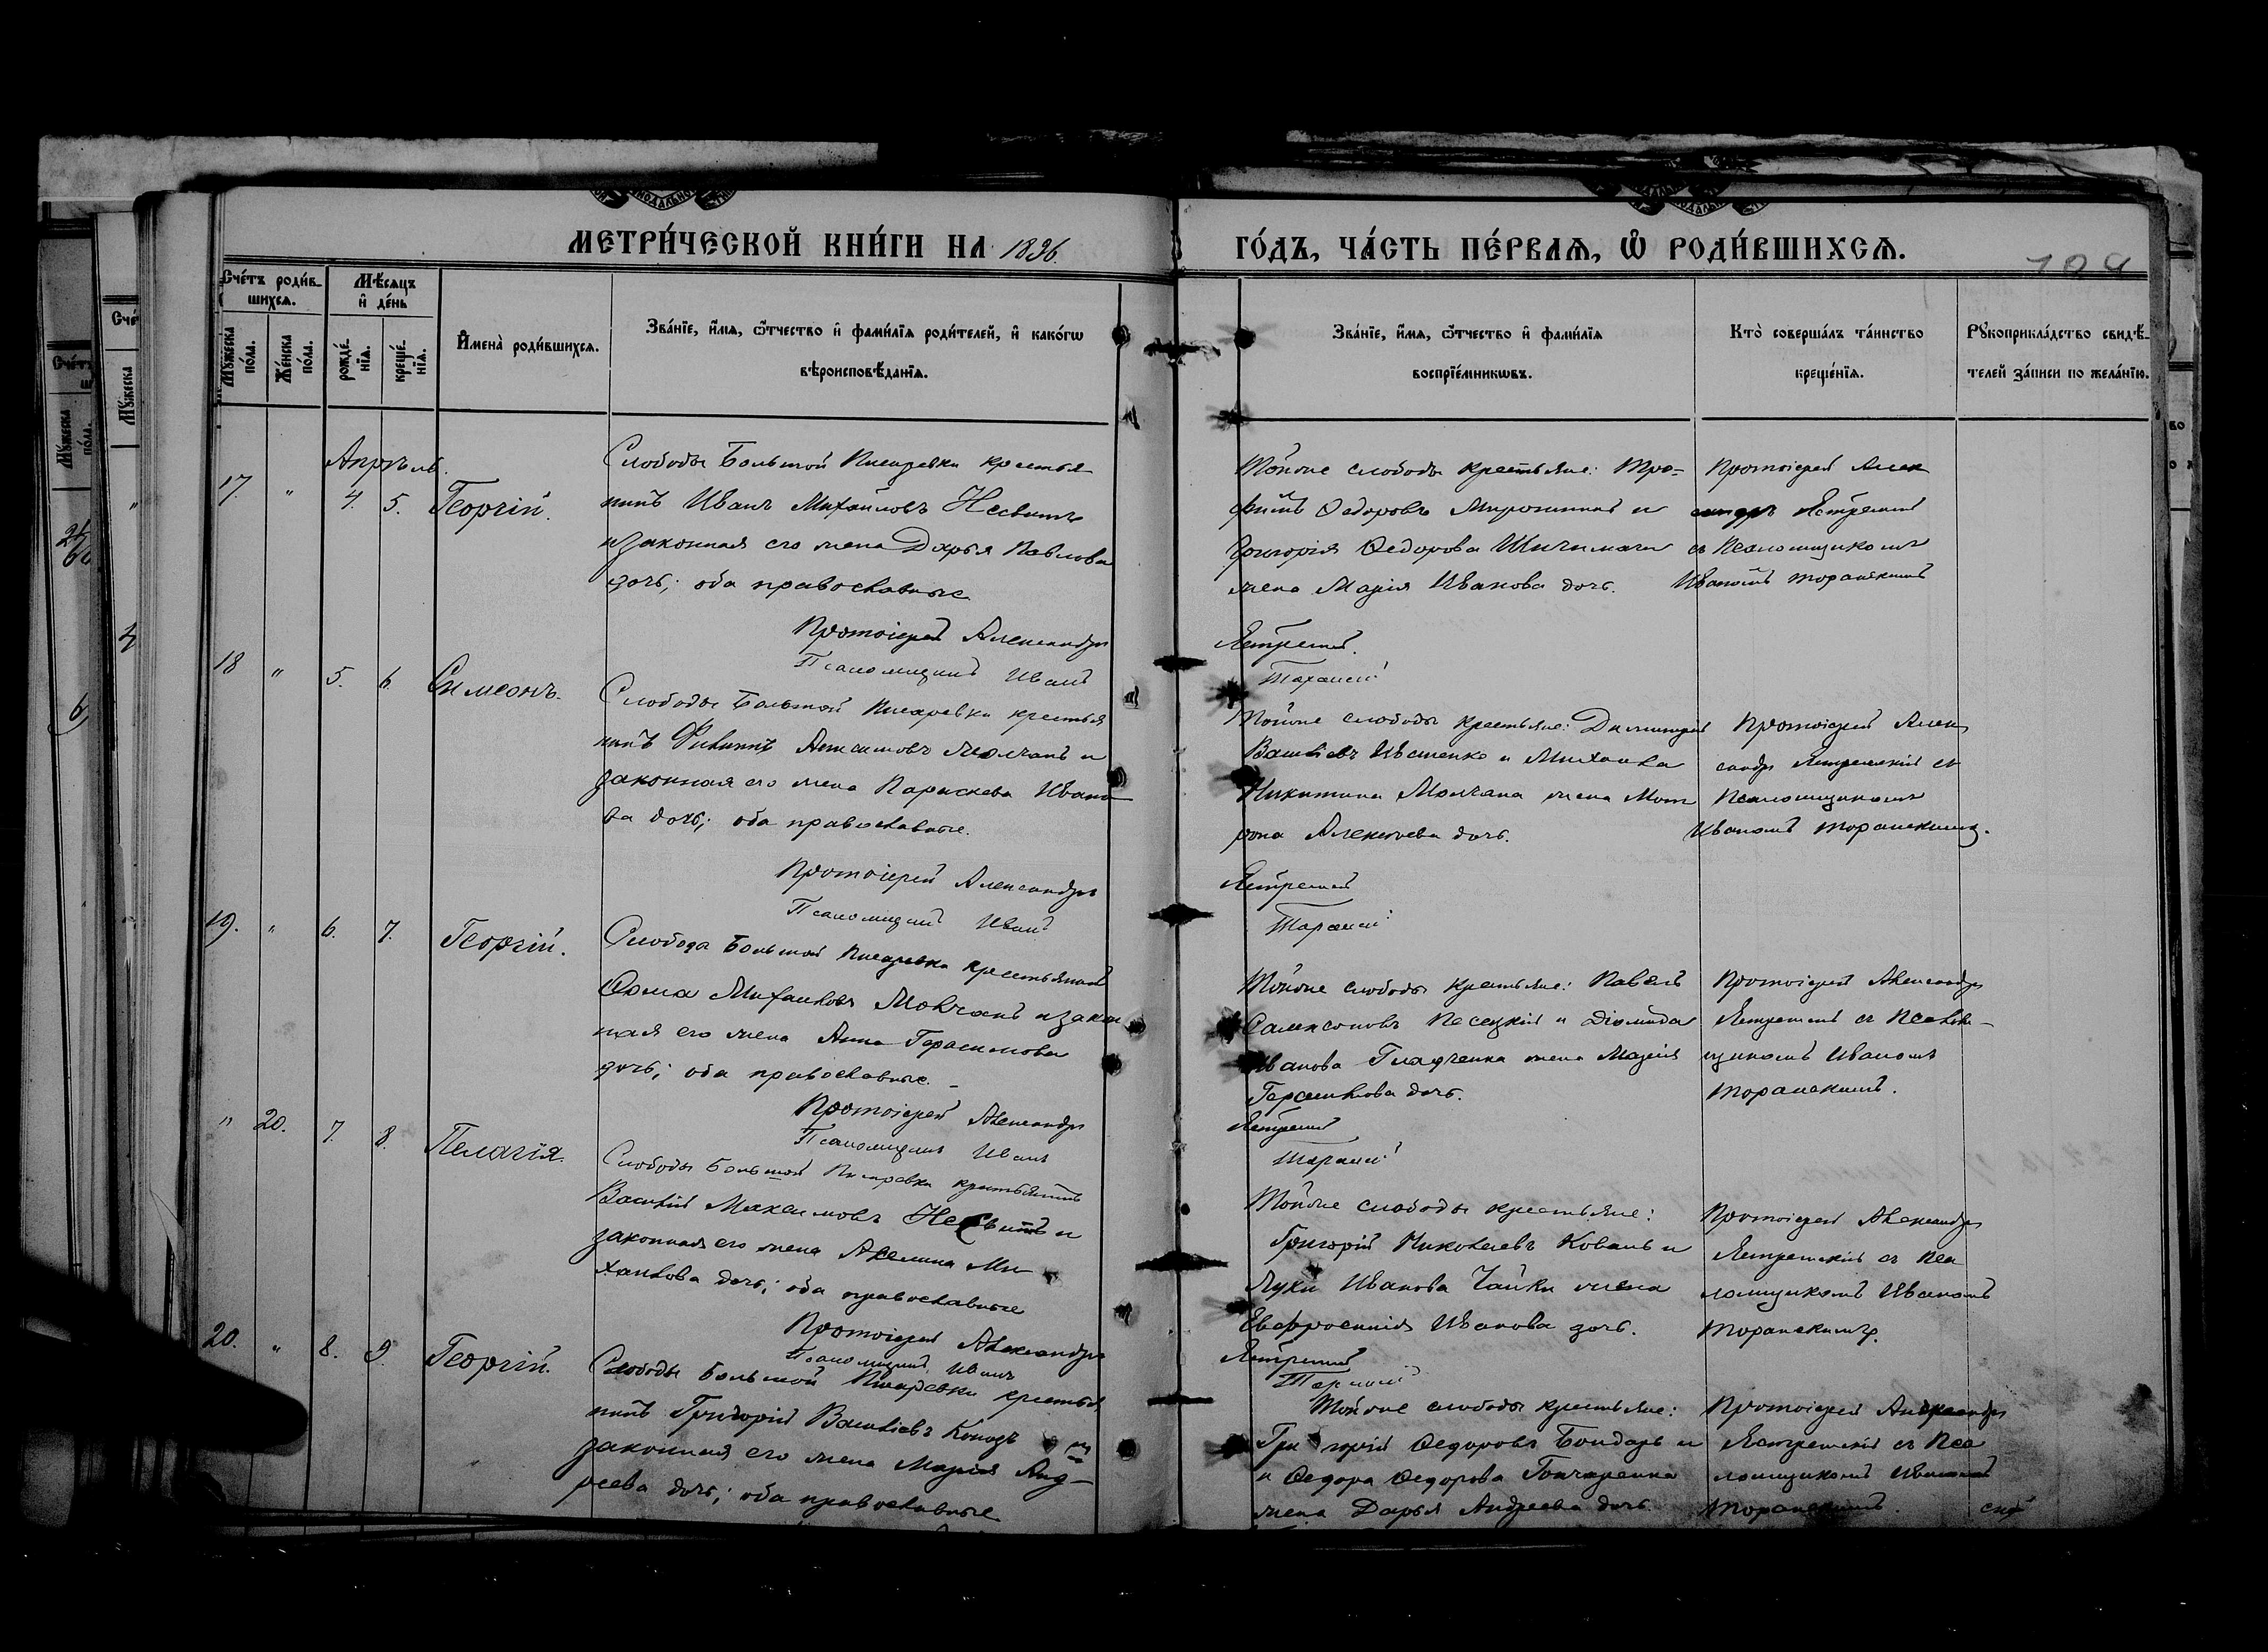 МЕТРИ́ЧЕСКОЙ КНИ́ГИ НА 1896.
ГО́ДЪ, ЧА́СТЬ ПЕ́РВАЯ, Ѿ РОДИ́ВШИХСЯ.
Сче́тъ роди́в-
шихся.
Мѣ́сяцъ
и҆ де́нь
Му́жеска
по́ла.
Же́нска
по́ла.
рожде́
нїя.
креще́
нїя.
И҆мена̀ роди́вшихся.
Зва́нїе, и҆́мя, ѻ҆́тчество и҆ фами́лїя роди́телей, и҆ како́гѡ
вѣроисповѣ́данїя.
Зва́нїе, и҆́мя, ѻ҆́тчество и҆ фами́лїя
воспрїе́мникѡвъ.
Кто̀ соверша́лъ та́инство
креще́нїя.
Рꙋкоприкла́дство свидѣ́-
телей за́писи по жела́нїю.
Апрѣль.
17. " 4. 5. Георгій.
Слободы Большой Писаревки крестья-
нинъ Иванъ Михайловъ Несвитъ
и законная его жена Дарья Павлова
дочь; оба православные
Тойже слободы крестьяне: Тро-
фимъ Ѳедоровъ и
Григорія Ѳедорова
жена Марія Иванова дочь.
Протоіерей Алек
сандръ Ястремскій
съ Псаломщикомъ
Иваномъ Торанскимъ
Протоіерей Александръ Ястремскій.
Псаломщикъ Иванъ Торанскій
18 " 5. 6. Симеонъ.
Слободы Большой Писаревки крестья
нинъ Филиппъ Молчанъ и
законная его жена Параскева Ивано
ва дочь; оба православные.
Тойже слободы крестьяне: Димитрій
Васильевъ Ившенко и Михаила
Никитина Молчана жена Мот
рона Алексѣева дочь.
Протоіерей Алек
сандръ Ястремскій съ
Псаломщикомъ
Иваномъ Торанскимъ.
Протоіерей Александръ Ястремскій
Псаломщикъ Иванъ Торанскій
19. " 6. 7. Георгій.
Слобода Большой Писаревки крестьянинъ
Ѳома Михаиловъ Молчанъ и закон
ная его жена Анна Герасимова
дочь; оба православные.
Тойже слободы крестьяне: Павелъ
Самсоновъ Песецкій и Діомида
Иванова Гладченка жена Марія
Герасимова дочь.
Протоіерей Александръ
Ястремскій съ Псалом-
щикомъ Иваномъ
Торанскимъ.
Протоіерей Александръ Ястремскій
Псаломщикъ Иванъ Торанскій
" 20. 7. 8. Пелагія.
Слободы Большой Писаревки крестьянинъ
Василій Максимовъ Несвитъ и
законная его жена Акелина Ми
хаилова дочь; оба православные
Тойже слободы крестьяне:
Григорій Николаевъ Коваль и
Луки Ивановa Чайки жена
Евфросинія Иванова дочь.
Протоіерей Александръ
Ястремскій съ Пса
ломщикомъ Иваномъ
Торанскимъ.
Протоіерей Александръ Ястремскій
Псаломщикъ Иванъ Торанскій
20. " 8. 9. Георгій.
Слободы Большой Писаревки крестья
нинъ Григорій Васильевъ
законная его жена Марія Анд-
реева дочь; оба православные
Тойже слободы крестьяне:
Григорій Ѳедоровъ Бондарь и
и Ѳедора Ѳедорова Гончаренка
жена Дарья Андреева дочь
Протоіерей Александръ
Ястремскій съ Пса
ломщикомъ Иваномъ
Торанскимъ.